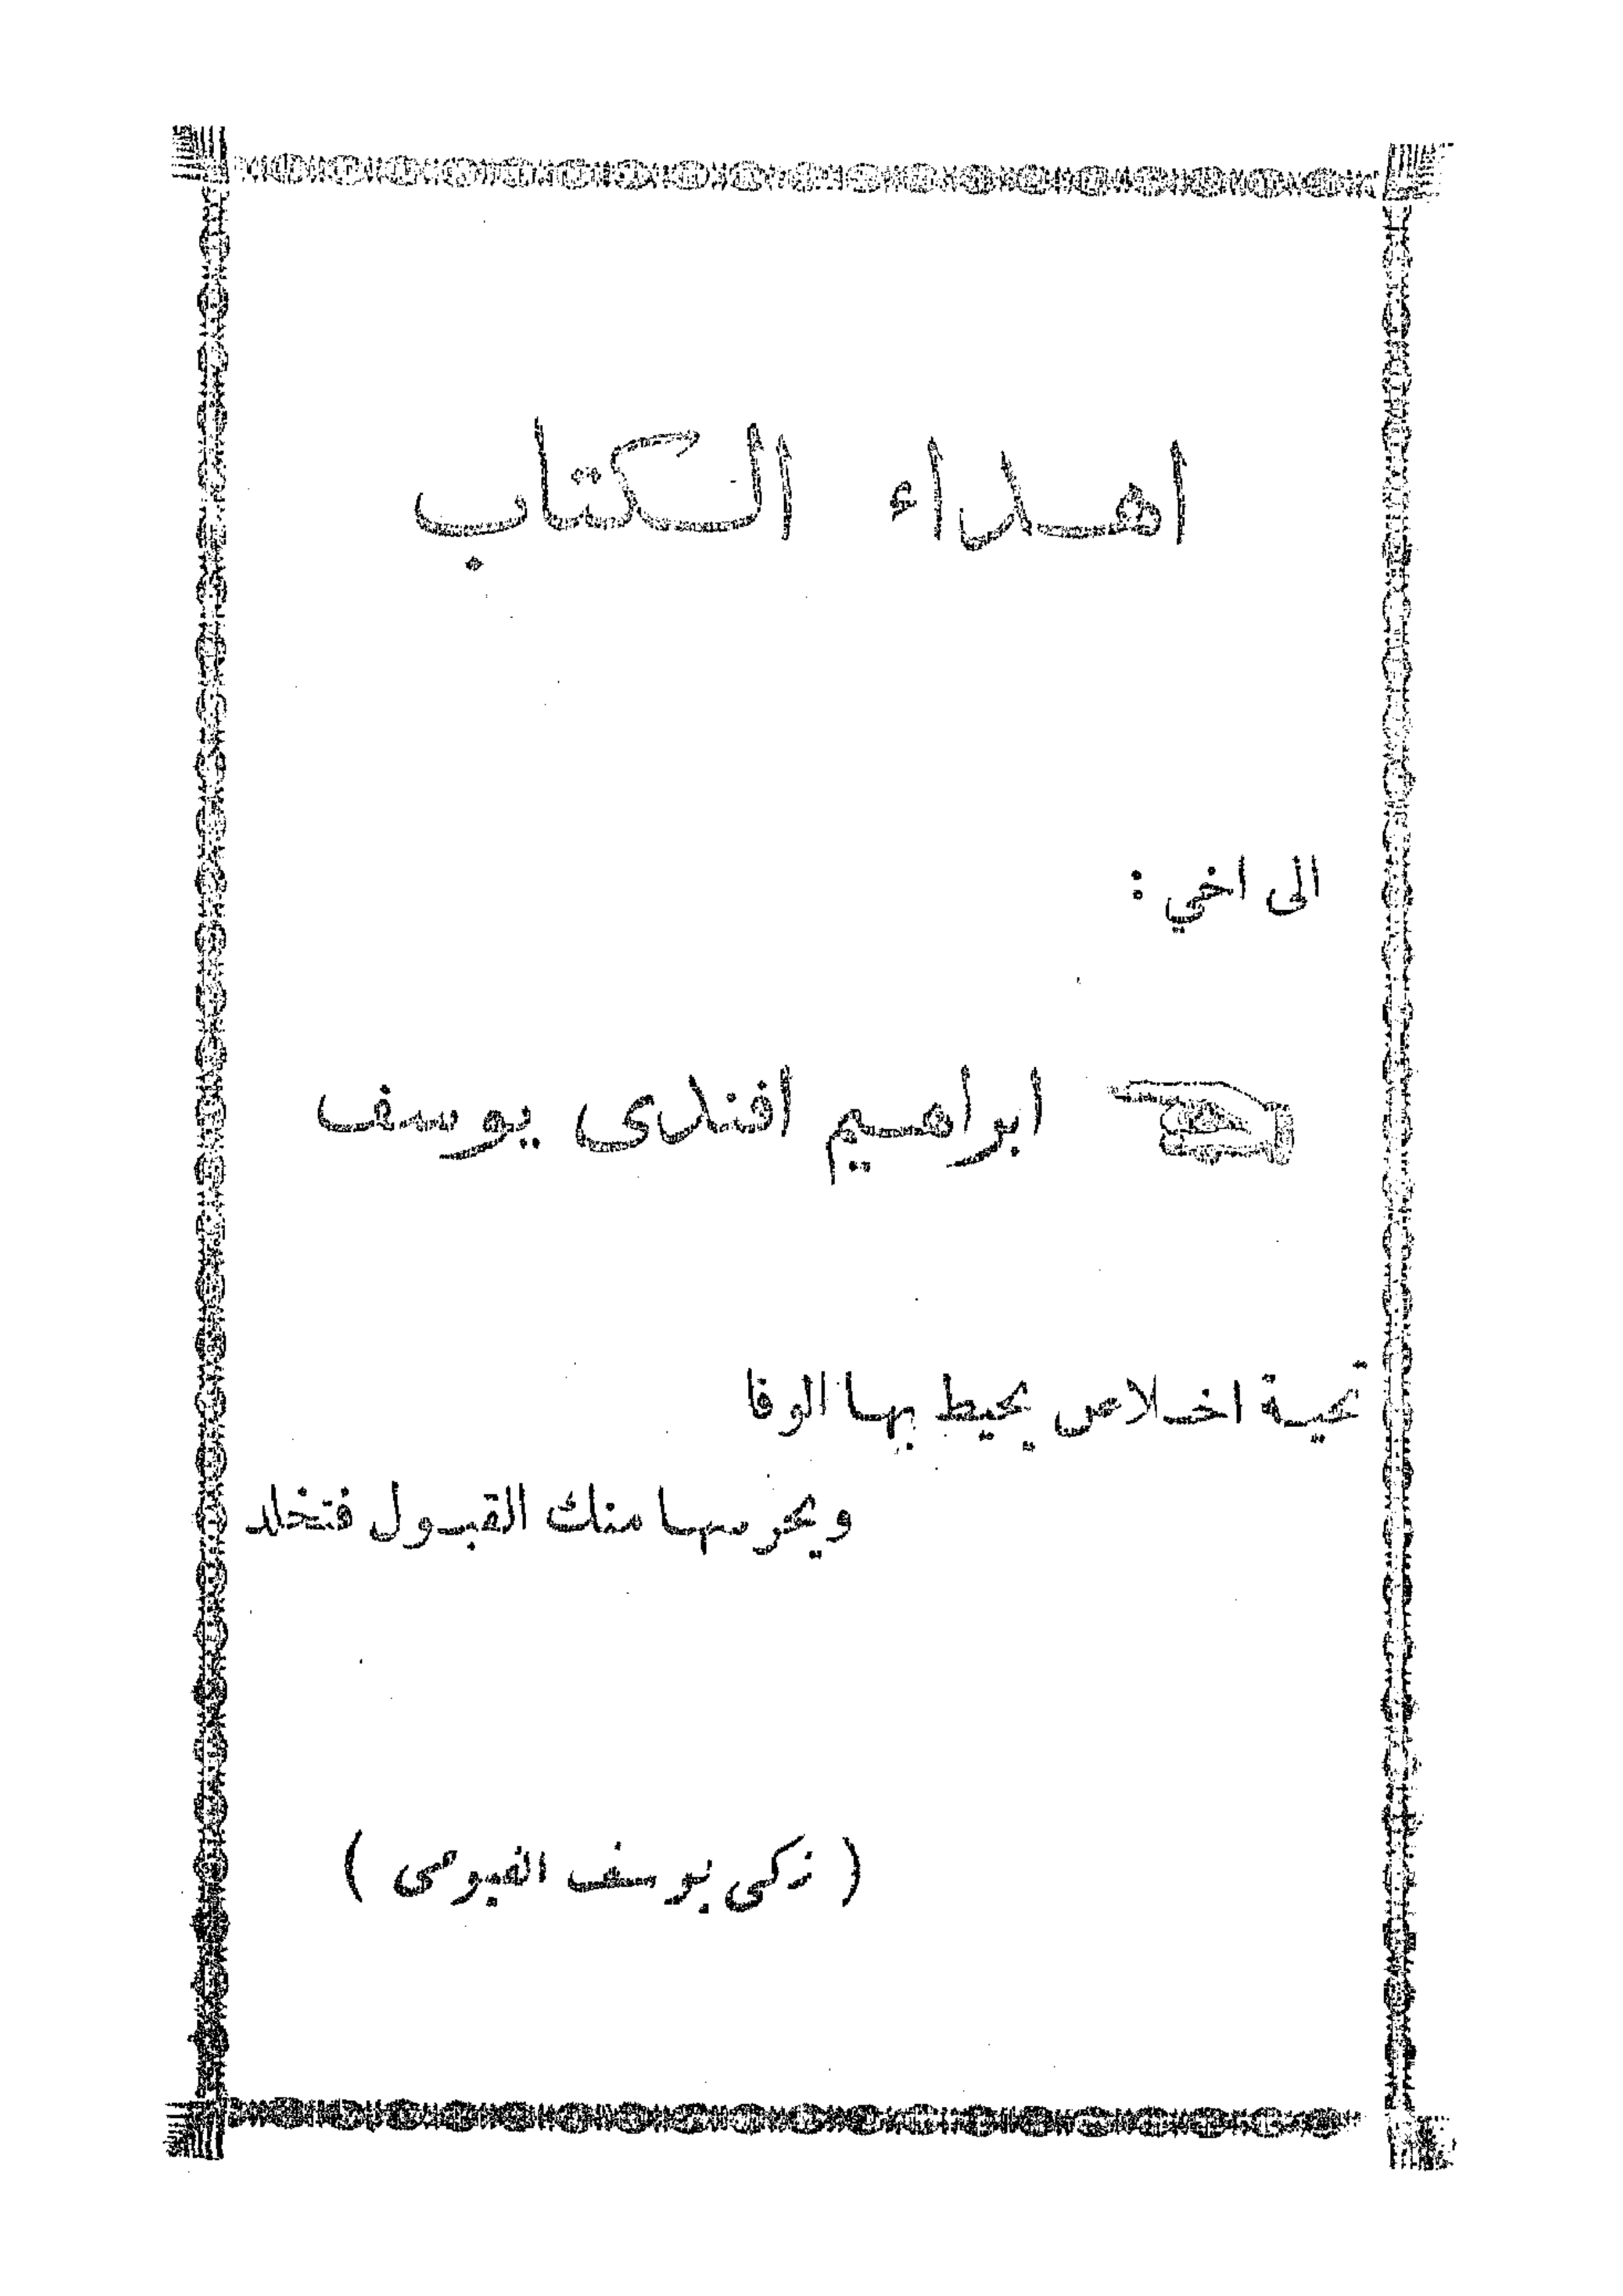 اهداء الكتاب
الى اخي :
ابراهيم افندى يوسف
تحية اخلاص يحيط بها الوفا
ويحرسها منك القبول فتخلد
( زكى يوسف الفيومى )